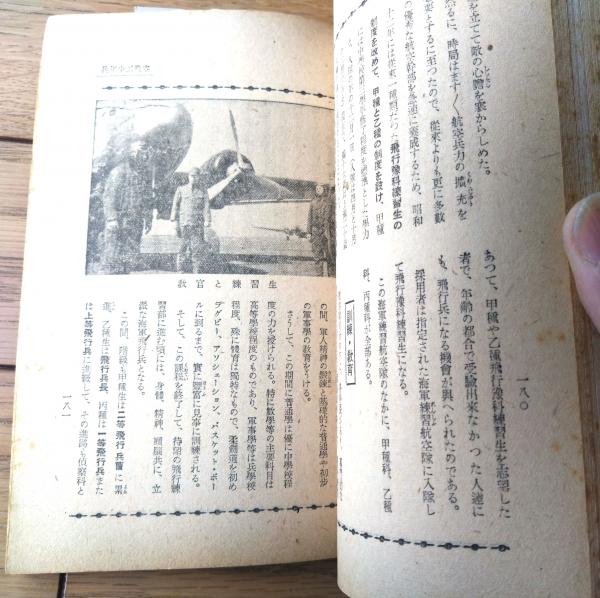 を立てて敵の心膽を寒からしめた。
然るに、時局はますます航空兵力の擴充を
來とするに至つたので、從來よりも更に多數
の優秀な航空幹部を急速に養成するため、昭和
十二年には從來一種類だつた飛行豫科練習生の
制度を改めて、甲種と乙種の制度を設け、甲種
あつて、甲種や乙種飛行豫科練習生を志望した
者で、年齡の都合で受驗出來なかつた人達に
も、飛行兵になる機會が與へられたのである。
採用者は指定された海軍練習航空隊に入隊し
て飛行豫科練習生になる。
この海軍練習航空隊のなかに、甲種科、乙種
科、丙種科が全部ある。
【訓練と教育】
一八〇
空戰と少年兵
教官と練習生
の間、軍人精神の鍛練と基礎的な普通學や初步
の軍事學の教育をうける。
さうして、この期間に普通學は優に中學校程
度の力を授けられる。特に數學等の主要科目は
高等學校程度のものであり、軍事學等は兵學校
程度、殊に體育は獨特なもので、柔劍道を初め
ラグビー、アッシェーション、バスケット・ボー
ルに到るまで、實に豐富に見事に訓練される。
そして、この課程を終了して、待望の飛行練
習部に進む頃には、身體、精神、頭腦共に、立
派な海軍飛行兵となる。
この間、階級も甲種生は二等飛行兵曹に累
進、乙種生は飛行兵長、丙種は一等飛行兵また
は上等飛行兵に進級して、その進路も偵察科と
一八一